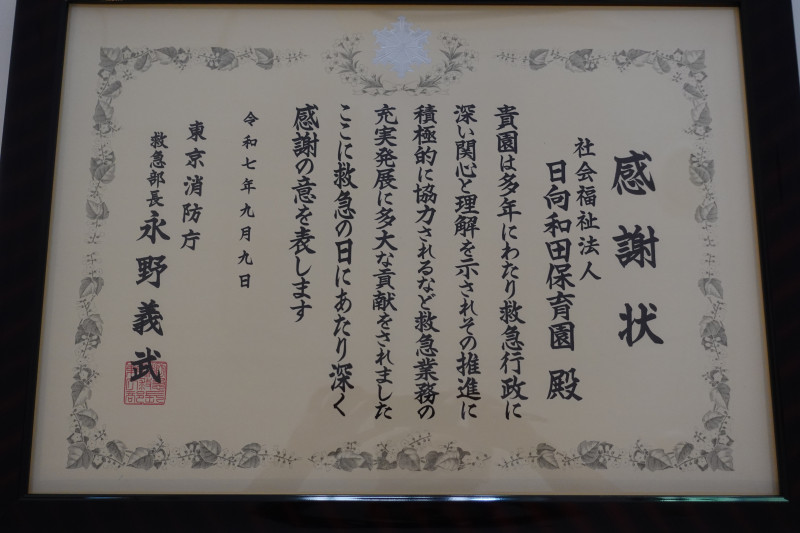 感謝状
社会福祉法人
日向和田保育園 殿
貴園は多年にわたり救急行政に
深い関心と理解を示されその推進に
積極的に協力されるなど救急業務の
充実発展に多大な貢献をされました
ここに救急の日にあたり深く
感謝の意を表します
令和七年九月九日
東京消防庁
救急部長 永野義武